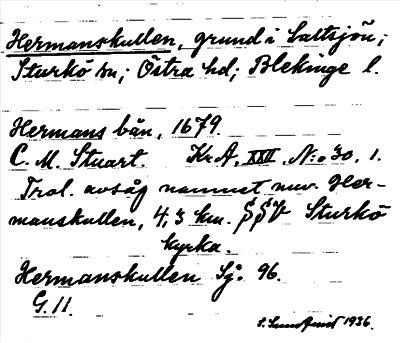 Hermanskullen, grund i Saltsjön;
Sturkö sn; Östra hd; Blekinge l.
Hermans bån, 1679.
C. M. Stuart. Kr. A, XXII. N:o 30, 1.
Trol. avsåg namnet nuv. Her-
manskullen, 4,3 km. SSV Sturkö
kyrka.
Hermanskullen Sj: 96.
G. 11.
1936.